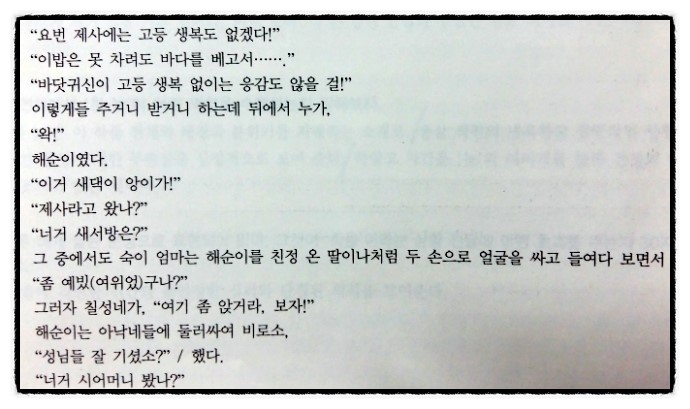 “요번 제사에는 고등 생복도 없겠다!”
“이밥은 못 차려도 바다를 베고서…….”
“바닷귀신이 고등 생복 없이는 응감도 않을 걸!”
이렇게들 주거니 받거니 하는데 뒤에서 누가,
“왁!”
해순이였다.
“이거 새댁이 앙이가!”
“제사라고 왔나?”
“너거 새서방은?”
그 중에서도 숙이 엄마는 해순이를 친정 온 딸이나처럼 두 손으로 얼굴을 싸고 들여다 보면서
“좀 예빘(여위었)구나?”
그러자 칠성네가, “여기 좀 앉거라, 보자!”
해순이는 아낙네들에 둘러싸여 비로소,
“성님들 잘 기셨소?” / 했다.
“너거 시어머니 봤나?”